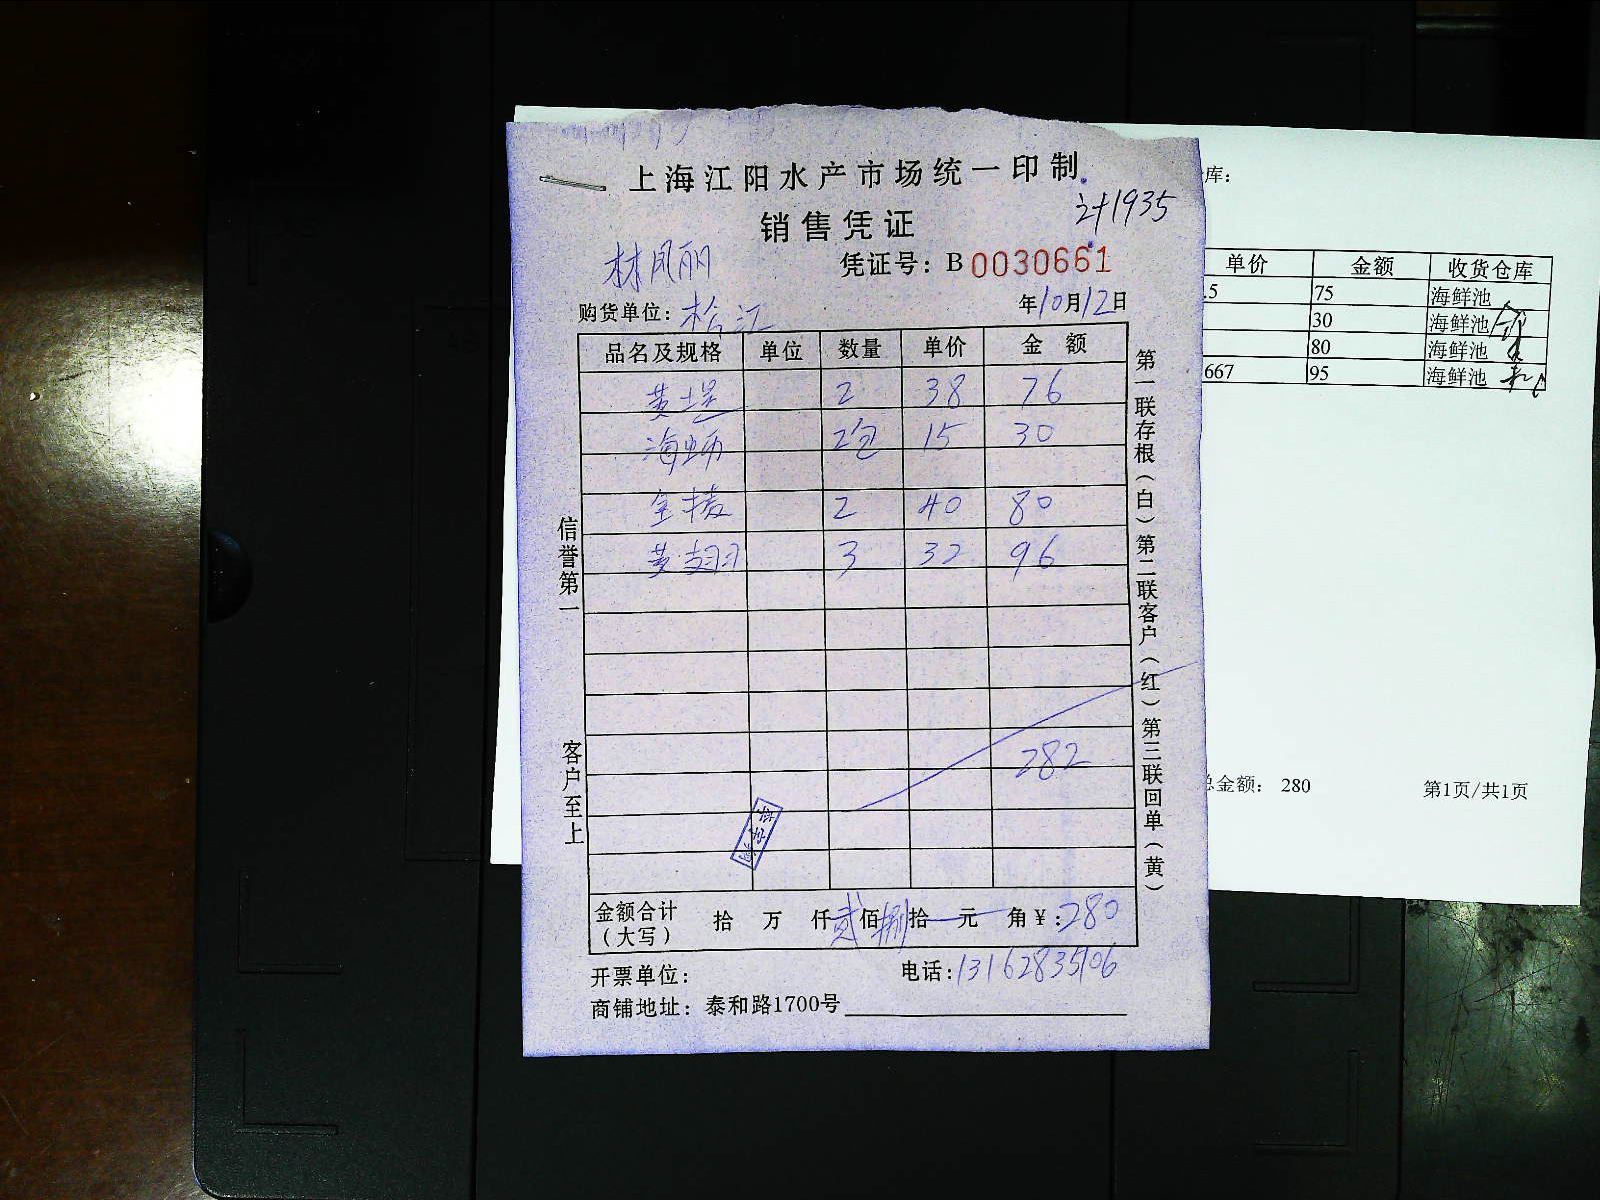 上海江阳水产市场统一印制
计1935
销售凭证
林凤丽
凭证号：B 0030661
购货单位：松江
年10月12日
品名及规格 单位 数量 单价 金额
2 38 76
海蛎 2包 15 30
2 40 80
黄翅 3 32 96
282
金额合计（大写） 拾 万 仟贰佰捌拾 元 角¥：280
开票单位：
电话：13162835106
商铺地址：泰和路1700号
信誉第一
客户至上
第一联存根（白）第二联客户（红）第三联回单（黄）
库：
单价 金额 收货仓库
.5 75 海鲜池
30 海鲜池
80 海鲜池
667 95 海鲜池
总金额： 280
第1页/共1页